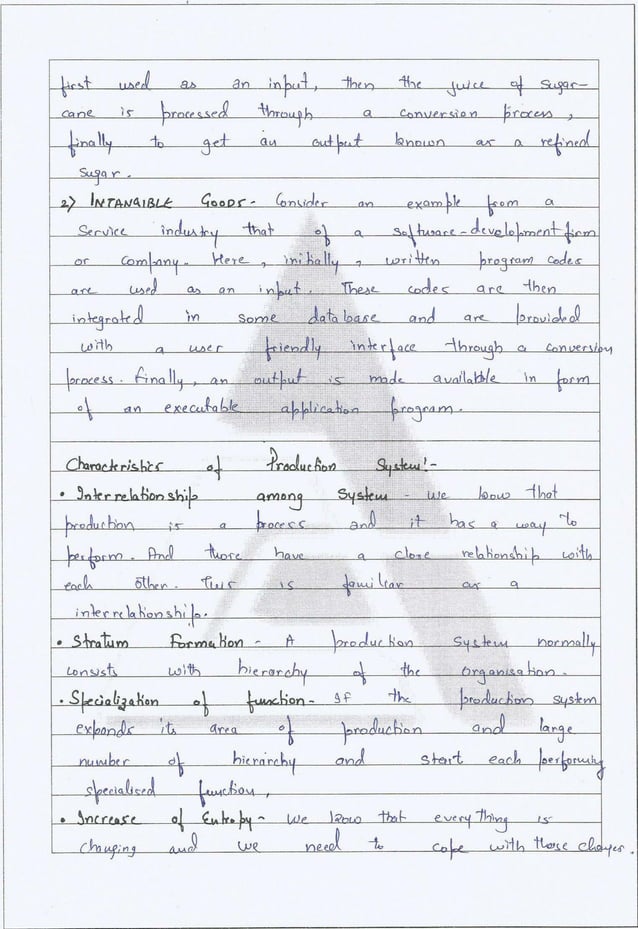 first used as an input, then the juice of sugar-
cane is processed through a conversion process,
finally to get an output known as a refined
sugar.
2) INTANGIBLE GOODS - Consider an example from a
Service industry that of a software-development firm
or company. Here, initially, written program codes
are used as an input. These codes are then
integrated in some database and are provided
with a user friendly interface through a conversion
process. finally, an output is made available in form
of an executable application program.
Characteristics of Production System:-
• Interrelationship among System - we know that
production is a process and it has a way to
perform. And those have a close relationship with
each other. This is familiar as a
interrelationship.
• Stratum Formation - A production System normally
consists with hierarchy of the organisation.
• Specialization of function - If the production system
expands its area of production and large
number of hierarchy and start each performing
specialised function,
• Increase of Entropy - we know that everything is
changing and we need to cope with those changes.